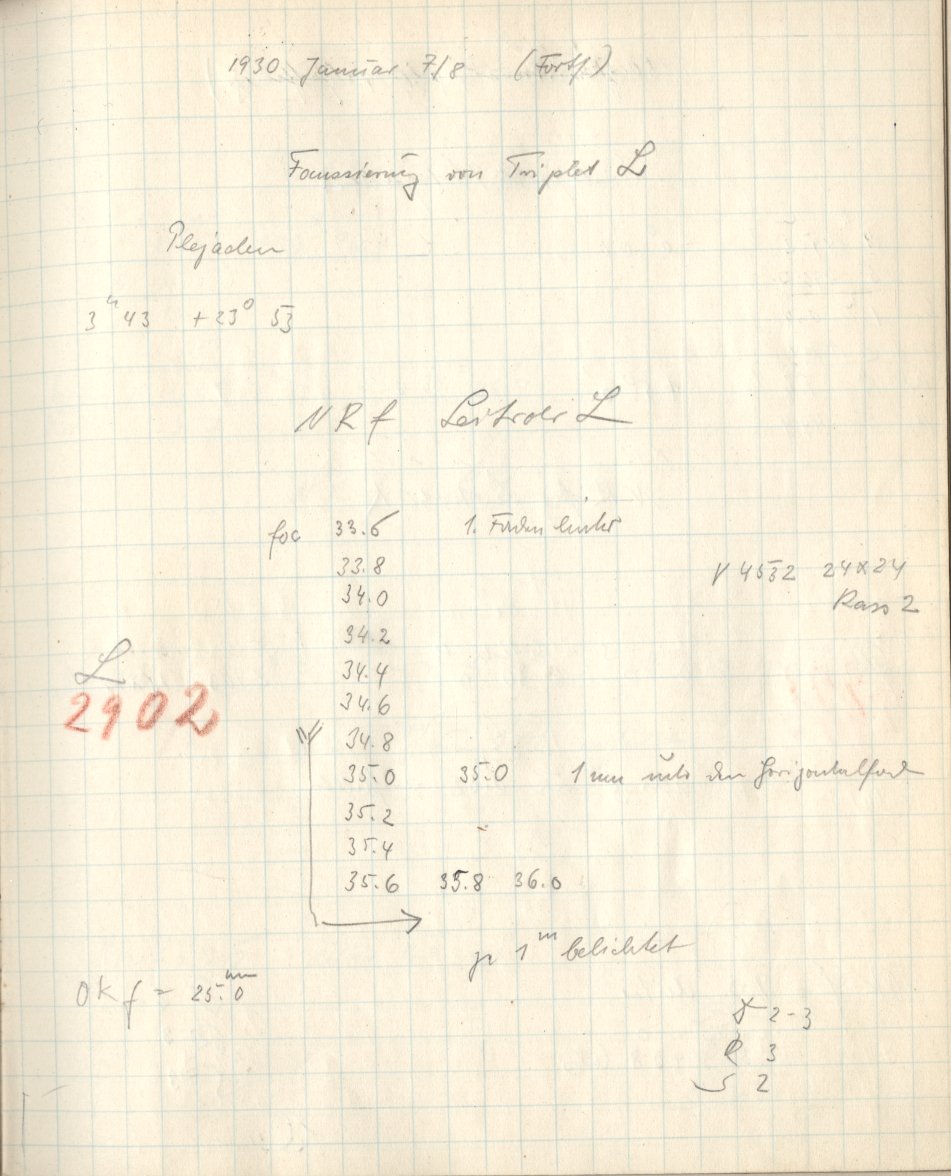 1930 Januar 7/8 (Forts.)
Foucssierung von Triplet L
Plejaden
3h 43 + 23° 53
NRf Leitrohr L
foc 33.6 1. Faden links
33.8
V 4532 24x24
34.0
Kass 2
34.2
34.4
L
34.6
2902
34.8
35.0 35.0 1 mm unter den Horizontalfad
35.2
35.4
35.6 35.8 36.0
je 1m belichtet
OKf = 25.0mm
2-3
R 3
S 2